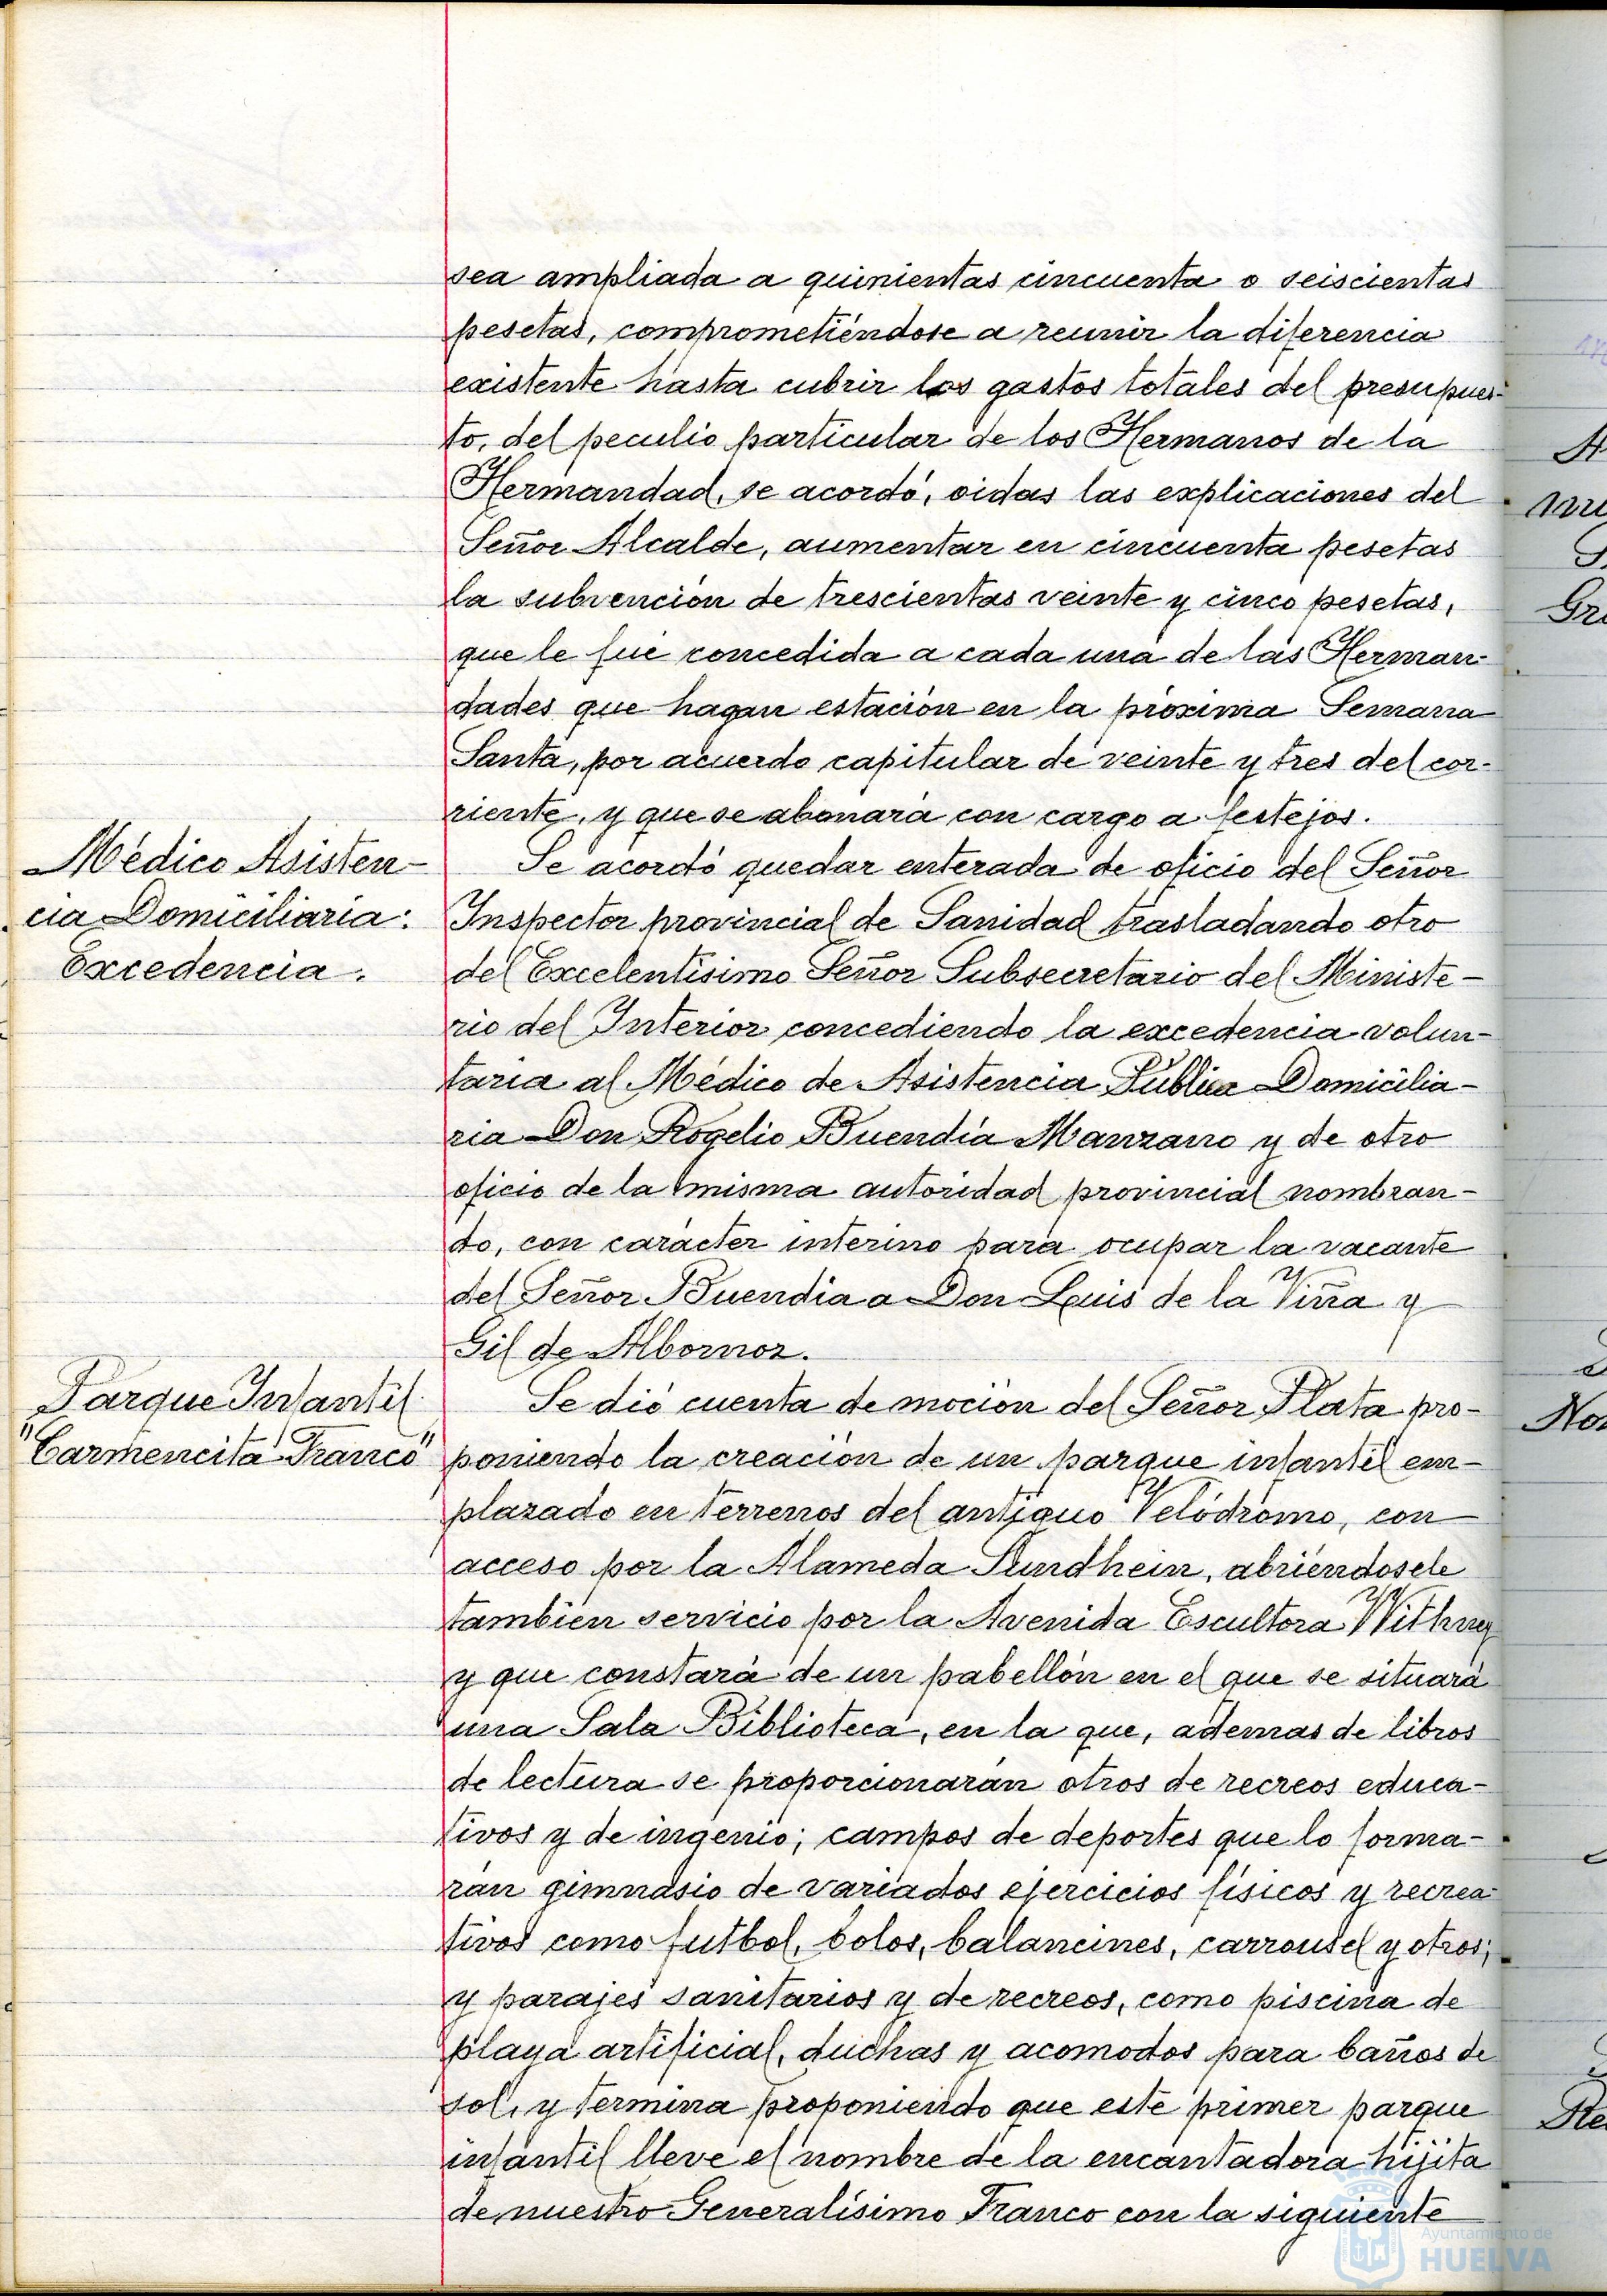 sea ampliada a quinientas cincuenta o seiscientas
pesetas, comprometiéndose a reunir la diferencia
existente hasta cubrir los gastos totales del presupues-
to, del peculio particular de los Hermanos de la
Hermandad, se acordó, oidas las explicaciones del
Señor Alcalde, aumentar en cincuenta pesetas
la subvención de trescientas veinte y cinco pesetas,
que le fué concedida a cada una de las Herman-
dades que hagan estación en la próxima Semana
Santa, por acuerdo capitular de veinte y tres del cor-
riente, y que se abonará con cargo a festejos.
Médico Asisten-
cia Domiciliaria:
Excedencia.
Se acordó quedar enterada de oficio del Señor
Inspector provincial de Sanidad trasladando otro
del Excelentísimo Señor Subsecretario del Ministe-
rio del Interior concediendo la excedencia volun-
taria al Médico de Asistencia Pública Domicilia-
ria Don Rogelio Buendía Manzano y de otro
oficio de la misma autoridad provincial nombran-
do, con carácter interino para ocupar la vacante
del Señor Buendia a Don Luis de la Viña y
Gil de Albornoz.
Parque Infantil
"Carmencita Franco"
Se dió cuenta de moción del Señor Plata pro-
poniendo la creación de un parque infantil em-
plazado en terrenos del antiguo Velódromo, con
acceso por la Alameda Sundhein, abriéndosele
también servicio por la Avenida Escultora Withney
y que constará de un pabellón en el que se situará
una Sala Biblioteca, en la que, ademas de libros
de lectura se proporcionarán otros de recreos educa-
tivos y de ingenio; campos de deportes que lo forma-
rán gimnásio de variados ejercicios físicos y recrea-
tivos como futbol, bolos, balancines, carrousel y otros;
y parajes sanitarios y de recreos, como piscina de
playa artificial, duchas y acomodos para baños de
sol, y termina proponiendo que este primer parque
infantil lleve el nombre de la encantadora hijita
de nuestro Generalísimo Franco con la siguiente
Ayuntamiento de
HUELVA